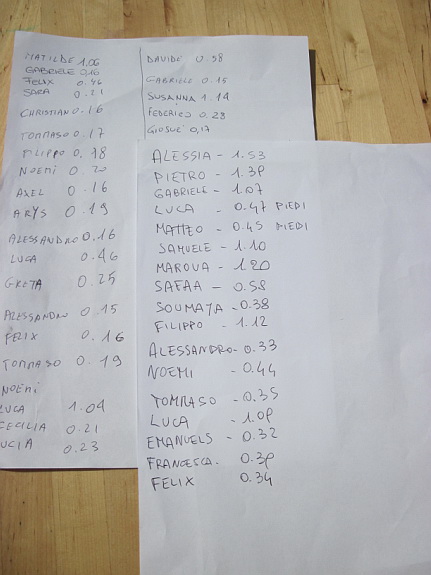 MATILDE 1.06
GABRIELE 0.16
FELIX 0.46
SARA 0.21
CHRISTIAN 0.16
TOMMASO 0.17
FILIPPO 0.18
NOEMI 0.20
AXEL 0.16
ARYS 0.19
ALESSANDRO 0.16
LUCA 0.46
GRETA 0.25
ALESSANDRO 0.15
FELIX 0.16
TOMMASO 0.19
NOEMI
LUCA 1.04
CECILIA 0.21
LUCIA 0.23
DAVIDE 0.58
GABRIELE 0.15
SUSANNA 1.14
FEDERICO 0.29
GIOSUÈ 0,17
ALESSIA - 1.53
PIETRO - 1.39
GABRIELE - 1.07
LUCA - 0.47 PIEDI
MATTEO - 0.45 PIEDI
SAMUELE - 1.10
MAROUA - 1.20
SAFAA - 0.58
SOUMAYA - 0.38
FILIPPO - 1.12
ALESSANDRO - 0.33
NOEMI - 0.44
TOMMASO - 0.35
LUCA - 1.09
EMANUELS - 0.32
FRANCESCA. 0.39
FELIX 0.34